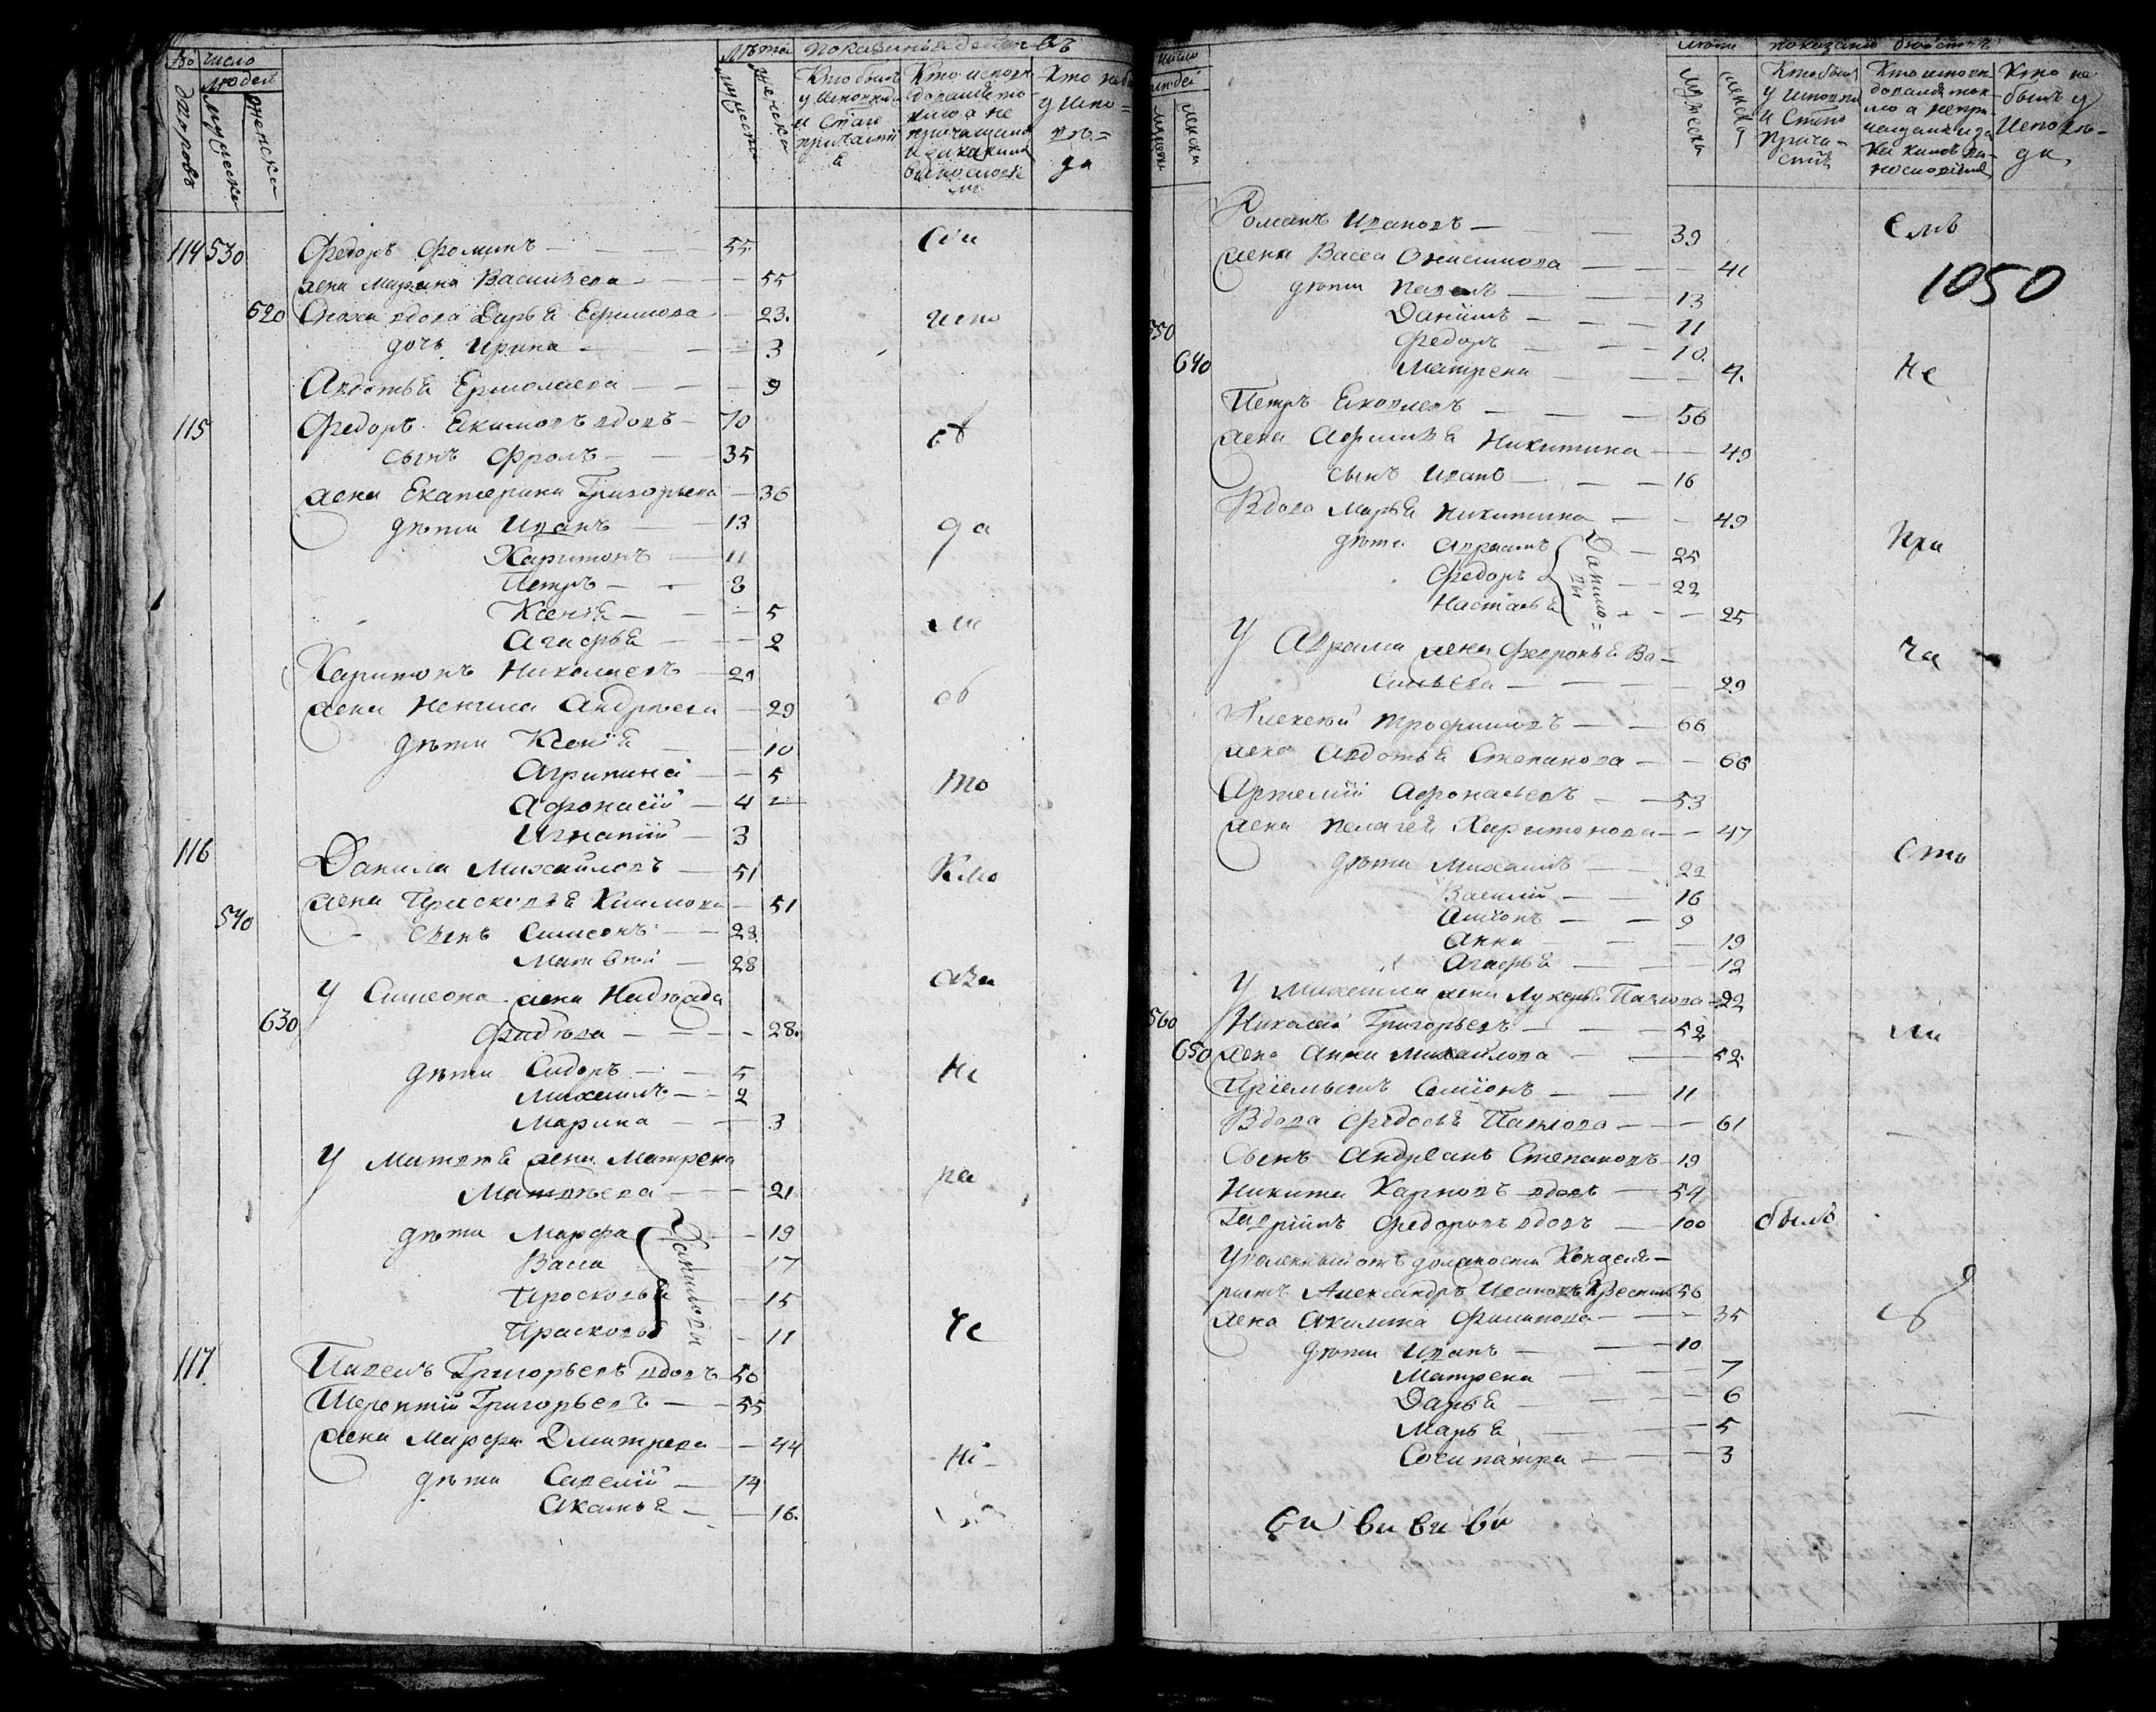 No число
людей
дворовъ
мужеска
женска
Лѣта
мужеска
женска
показаніе действъ
Кто былъ
у исповѣди
и Стаго
причастіе
Кто исповѣ
дался то
кмо а не
причащался
и за какимъ
винословіе
мъ
Кто не былъ
у испо=
вѣ=
ди
114 530 Федоръ Фоминъ 55
жена Марина Васильева 55
620 Сноха вдова Дарья Ефимова 23
дочь Ирина 3
Авдотья Ермолаева 9
115 Федоръ Екимовъ вдовъ 70
сынъ Фролъ 35
жена Екатерина Григорьева 36
дѣти Иванъ 13
Харитонъ 11
Петръ 8
Ксенія 5
Агафья 2
Харитонъ Николаевъ 29
жена Ненила Андреева 29
дѣти Ксенія 10
Агрипина 5
Афонасій 4
Игнатій 3
116 Данила Михайловъ 51
жена Прасковья Климова 51
540 сынъ Симеонъ 28
Матвей 28
У Симеона жена Надежда
630 Фадеева 28
дѣти Сидоръ 5
Михаилъ 2
Марина 3
У Матвея жена Матрена
Матвеева 21
дѣти Марфа 19
Васса 17
Просковья 15
Прасковья 11
Даниловы
117 Павелъ Григорьевъ вдовъ 56
Терентій Григорьевъ 55
жена Марфа Дмитрева 44
дѣти Савелій 14
Акилина 16
Сіи
испо
вѣ
да
ли
сь
то
кмо
а за
не
ра
че
ні
число
людей
мужеска
женска
лѣта
мужеска
женска
показаніе действъ
Кто былъ
у исповѣди
и Стаго
прича-
стія
Кто исповѣ
дался ток
мо а не при
чащался и за
какимъ ви-
нословіемъ
Кто не
былъ у
исповѣ-
ди
Романъ Ивановъ 39
жена Васса Онисимова 41
дѣти Павелъ 13
Данилъ 11
550 Федоръ 10
640 Матрена 4
Петръ Яковлевъ 56
жена Афимья Никитина 49
сынъ Иванъ 16
Вдова Марья Никитина 49
дѣти Авраамъ 25
Федоръ 22
Настасья 25
Данило=
вы
У Аврама жена Февронья Ва-
сильева 29
Алексей Трофимовъ 66
жена Авдотья Степанова 66
Артемій Афонасьевъ 53
жена Пелагея Харитонова 47
дѣти Михаилъ 22
Василій 16
Антонъ 9
Анна 19
Агафья 12
У Михаила жена Лукерья Павлова 22
560 Николай Григорьевъ 52
650 жена Анна Михайлова 52
Пріемышъ Семіонъ 11
Вдова Федосья Павлова 61
Сынъ Андреанъ Степановъ 19
Никита Карповъ вдовъ 54
Гавріилъ Федоровъ вдовъ 100 былъ
Уволенный отъ должности Канцеля-
ристъ Александръ Ивановъ 56
жена Акилина Филипова 35
дѣти Иванъ 10
Матрена 7
Дарья 6
Марья 5
Сосипатра 3
емъ
1050
не
при
ча
сти
ли
сь
ви ви ви ви